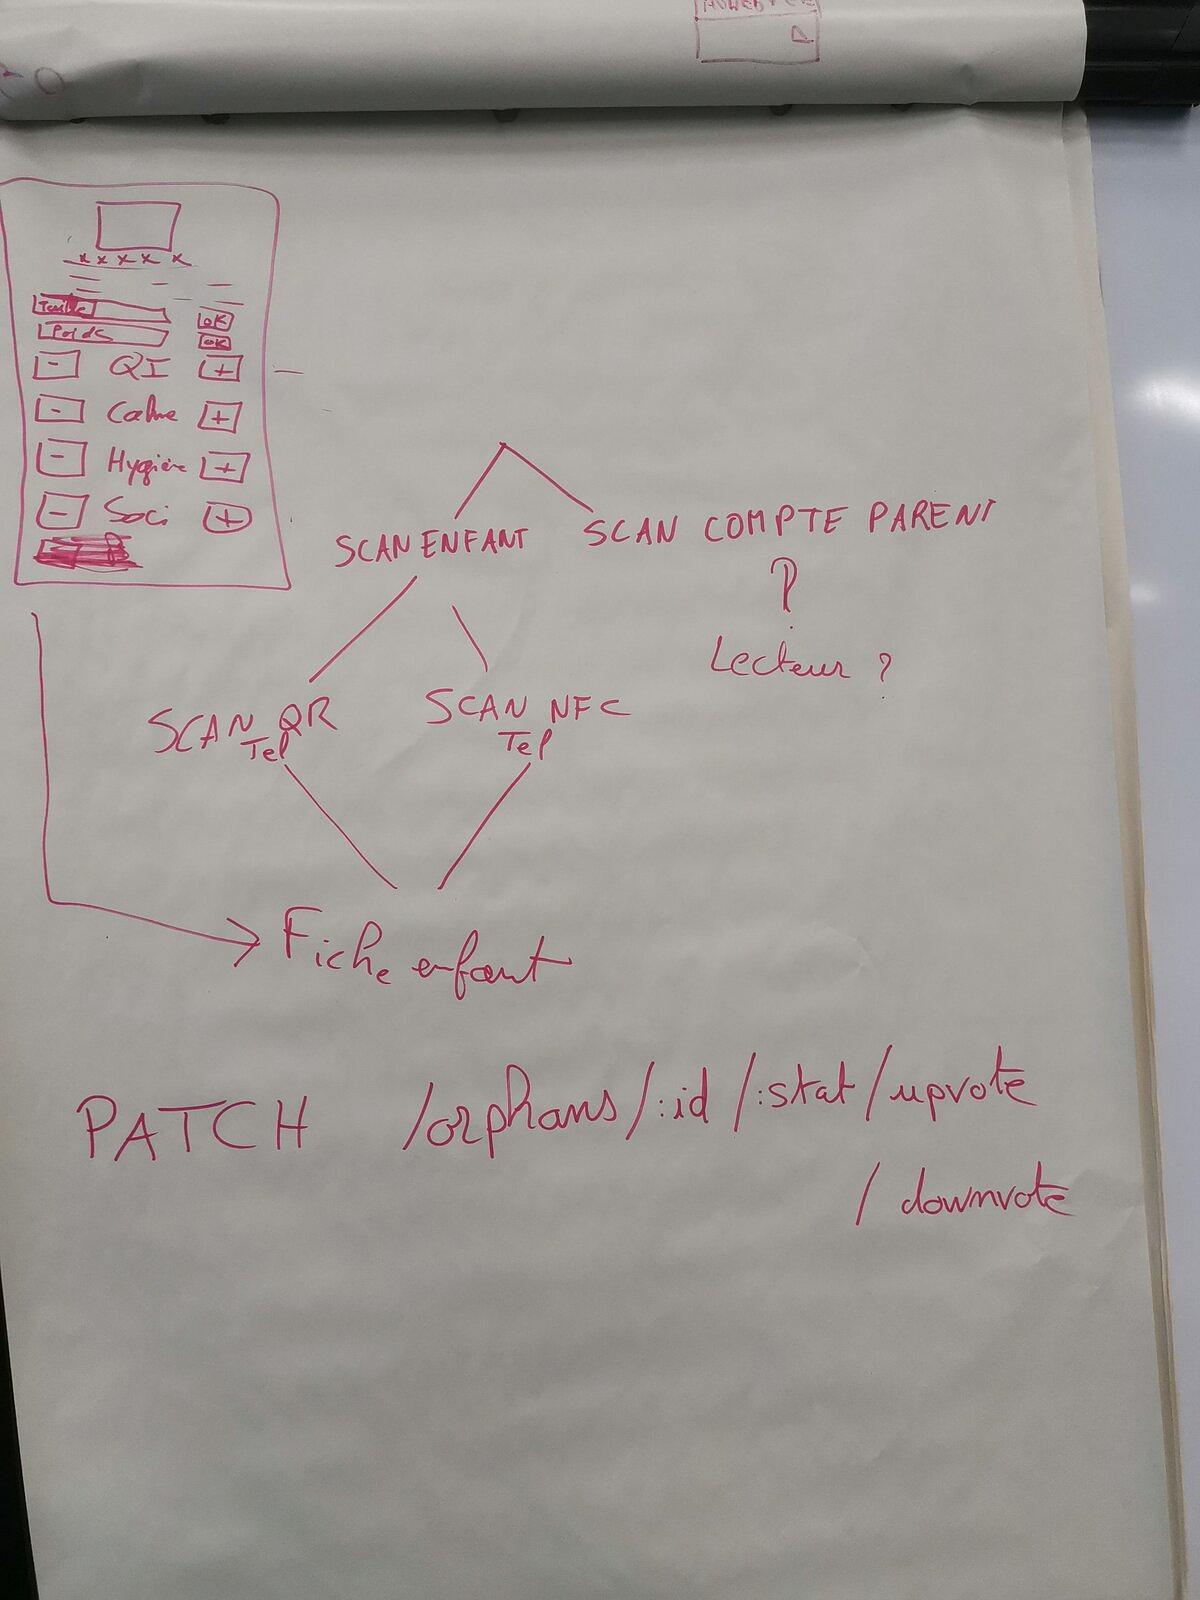 x x x x x
Taille
OK
Poids
OK
- QI +
- Calme +
- Hygiène +
- Soci +
SCAN ENFANT
SCAN COMPTE PARENT
?
Lecteur ?
SCAN QR
Tel
SCAN NFC
Tel
Fiche enfant
PATCH /orphans/:id/:stat/upvote
/downvote